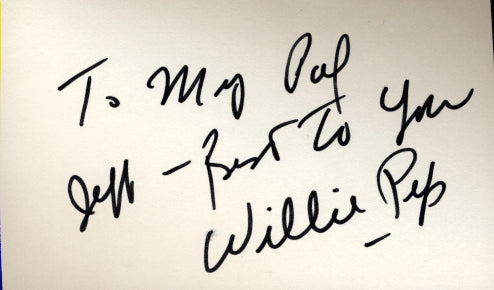 To My Pal
Jeff - Best To You
Willie Pep